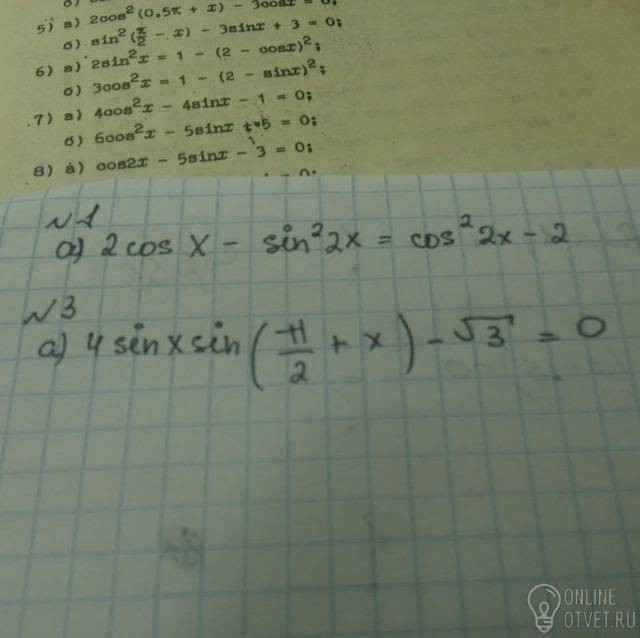 5) а) 2cos²(0.5π + x) - 3cosx = 0;
б) sin²(π/2 - x) - 3sinx + 3 = 0;
6) а) 2sin²x = 1 - (2 - cosx)²;
б) 3cos²x = 1 - (2 - sinx)²;
7) а) 4cos²x - 4sinx - 1 = 0;
б) 6cos²x - 5sinx + 5 = 0;
8) а) cos2x - 5sinx - 3 = 0;
№1
а) 2 cos x - sin² 2x = cos² 2x - 2
№3
а) 4 sin x sin (π/2 + x) - √3 = 0
ONLINE
OTVET.RU